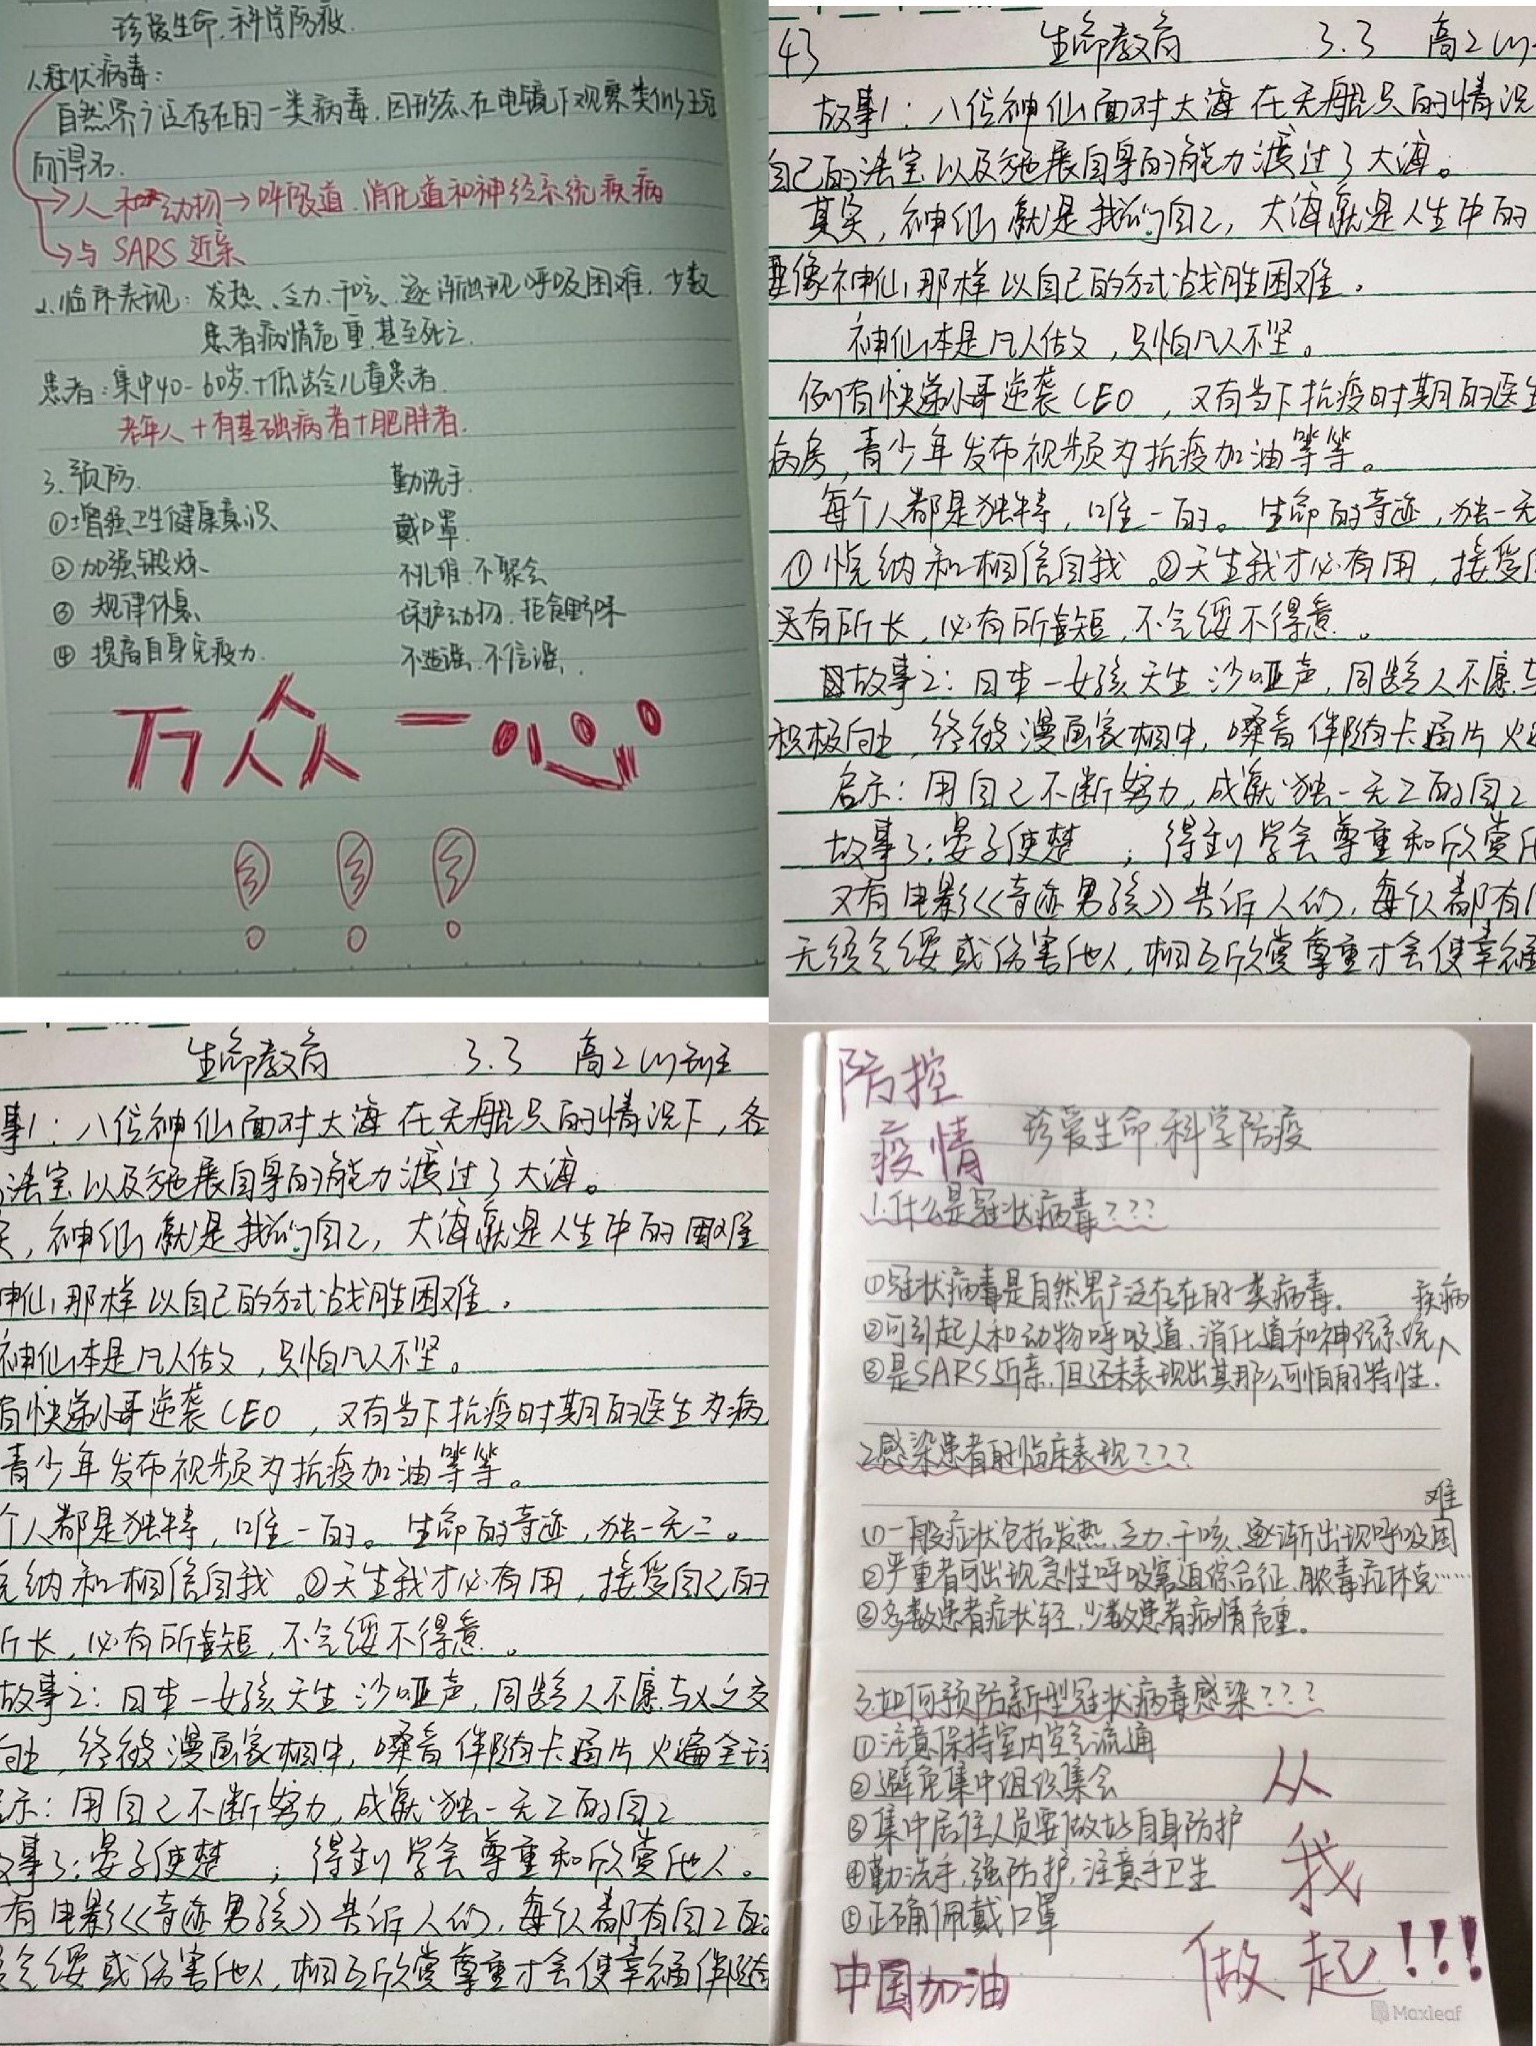 珍爱生命.科学防疫.
1.冠状病毒:
自然界广泛存在的一类病毒.因形态在电镜下观察类似王冠
而得名.
→人和动物→呼吸道.消化道和神经系统疾病
→与SARS近亲
2.临床表现:发热、乏力、干咳、逐渐出现呼吸困难.少数
患者病情危重.甚至死亡.
患者:集中40-60岁.+低龄儿童患者.
老年人+有基础病者+肥胖者.
3.预防.
①增强卫生健康意识
②加强锻炼
③规律休息
④提高自身免疫力.
勤洗手.
戴口罩.
不扎堆.不聚会
保护动物.拒食野味
不造谣.不信谣.
万众一心
43 生命教育 3.3 高二(1)
故事1:八位神仙面对大海在无船只的情况
自己的法宝以及施展自身的能力渡过了大海。
其实,神仙就是我们自己,大海就是人生中的
要像神仙那样以自己的方式战胜困难。
神仙本是凡人做,只怕凡人不坚。
例有快递小哥逆袭CEO,又有当下抗疫时期的医生
病房,青少年发布视频为抗疫加油等等。
每个人都是独特,唯一的。生命的奇迹,独一无
①悦纳和相信自我。②天生我才必有用,接受
另有所长,必有所短,不气馁不得意。
故事2:日本一女孩天生沙哑声,同龄人不愿与
积极向上,终被漫画家相中,嗓音伴随卡通片火遍
启示:用自己不断努力,成就独一无二的自己
故事3:晏子使楚;得到学会尊重和欣赏他
又有电影《奇迹男孩》告诉人们,每个人都有
无须气馁或伤害他人,相互欣赏尊重才会使幸福
生命教育 3.3 高二(1)班
事1:八位神仙面对大海在无船只的情况下,各
法宝以及施展自身的能力渡过了大海。
实,神仙就是我们自己,大海就是人生中的困难
神仙那样以自己的方式战胜困难。
神仙本是凡人做,只怕凡人不坚。
有快递小哥逆袭CEO,又有当下抗疫时期的医生为病
青少年发布视频为抗疫加油等等。
个人都是独特,唯一的。生命的奇迹,独一无二。
悦纳和相信自我。②天生我才必有用,接受自己的
所长,必有所短,不气馁不得意。
故事2:日本一女孩天生沙哑声,同龄人不愿与之交
向上,终被漫画家相中,嗓音伴随卡通片火遍全球
启示:用自己不断努力,成就独一无二的自己
故事3:晏子使楚;得到学会尊重和欣赏他人。
有电影《奇迹男孩》告诉人们,每个人都有自己
气馁或伤害他人,相互欣赏尊重才会使幸福伴随
防控
疫情
珍爱生命.科学防疫
1.什么是冠状病毒???
①冠状病毒是自然界广泛存在的一类病毒.
②可引起人和动物呼吸道、消化道和神经系统疾病
③是SARS近亲.但还未表现出其那么可怕的特性.
2.感染患者的临床表现???
①一般症状包括发热、乏力、干咳、逐渐出现呼吸困难
②严重者可出现急性呼吸窘迫综合征、脓毒症休克……
③多数患者症状轻,少数患者病情危重。
3.如何预防新型冠状病毒感染???
①注意保持室内空气流通
②避免集中组织集会
③集中居住人员要做好自身防护
④勤洗手,强防护,注意手卫生
⑤正确佩戴口罩
从
我
做起!!!
中国加油
Maxleaf